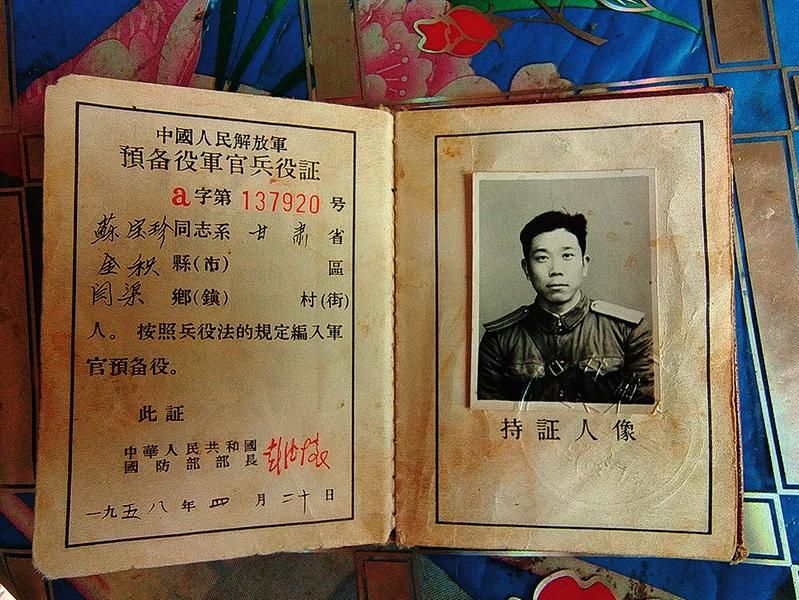 中國人民解放軍
預备役軍官兵役証
a字第 137920 号
蘇宝珍同志系 甘肃省
金积縣(市) 區
闫渠 鄉(鎮) 村(街)
人。按照兵役法的規定編入軍
官預备役。
此証
中華人民共和國
國防部部長 彭德懷
一九五八年四月二十日
持証人像